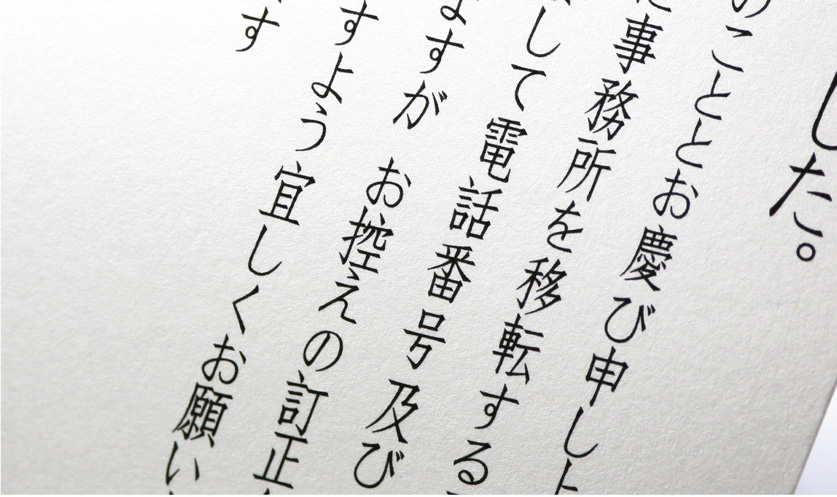 した。
のこととお慶び申し上
に事務所を移転する
して電話番号及び
ますが お控えの訂正
すよう宜しくお願い
す